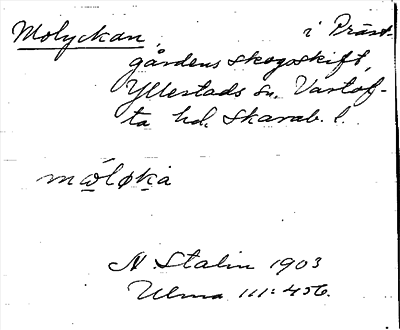 Molyckan, i Präst-
gårdens skogsskift,
Yllestads sn. Vartof-
ta hd. Skarab. l.
mώ̨løka
N. Stalin 1903
Ulma 111:456.